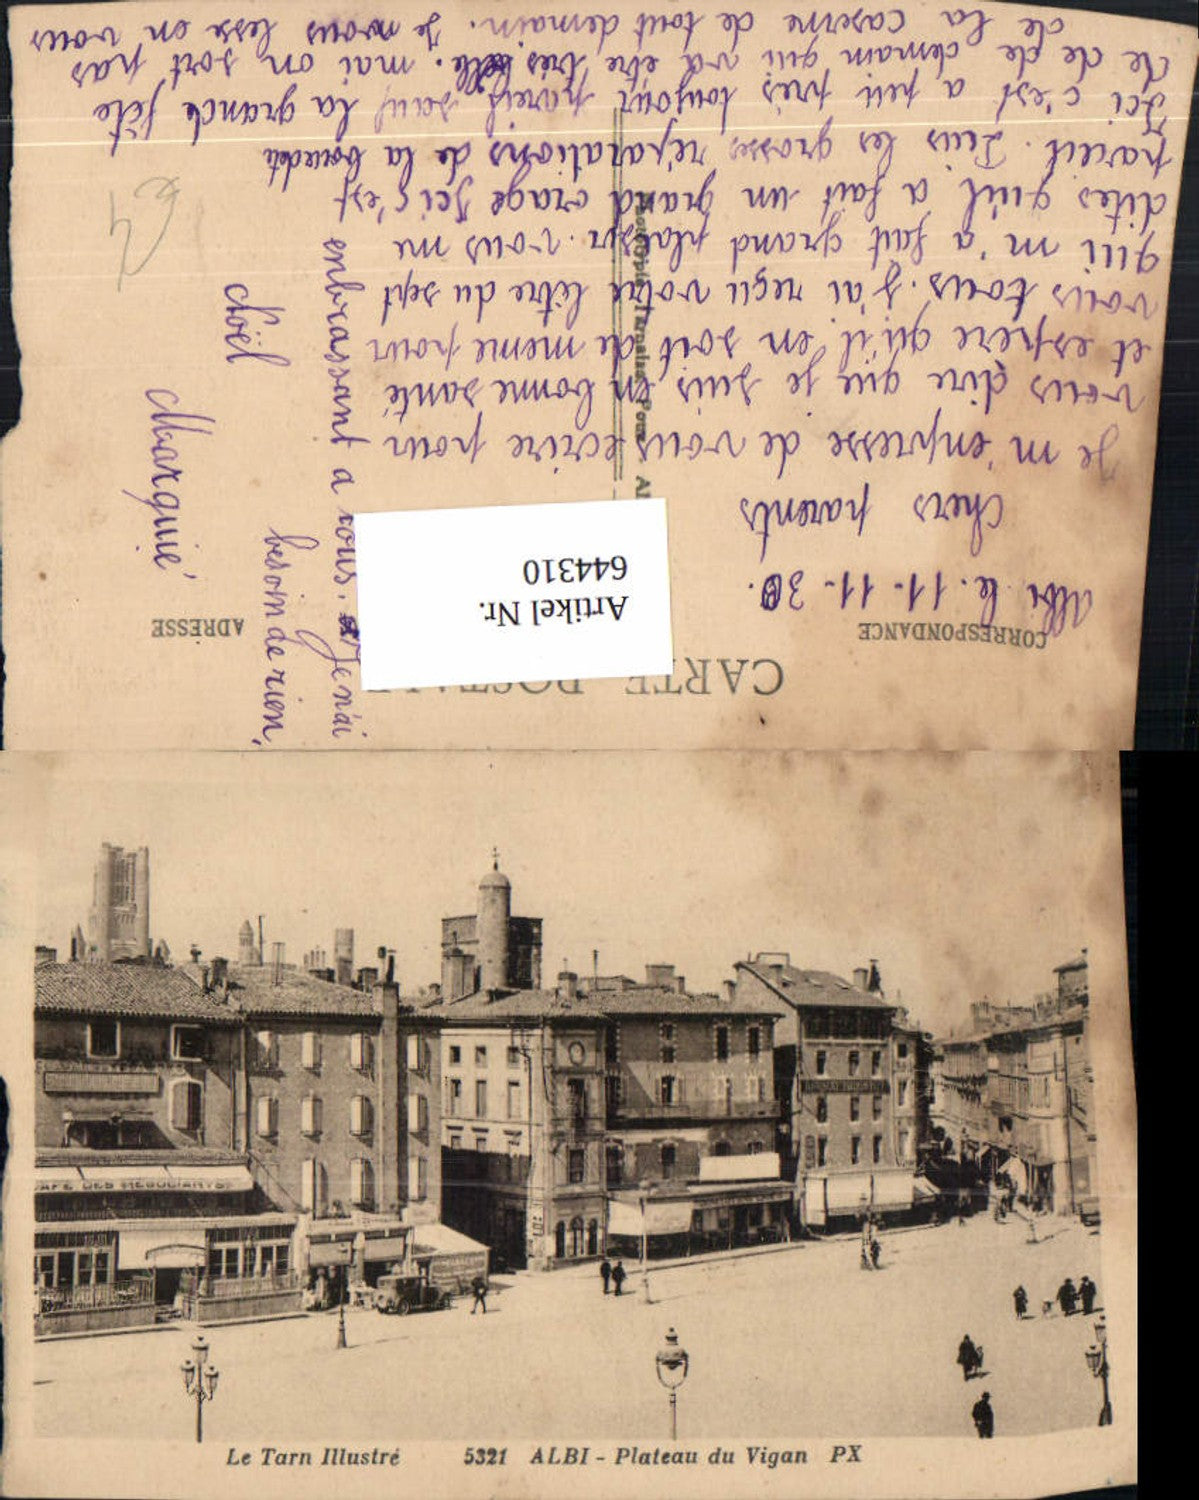 CARTE POSTALE
CORRESPONDANCE
ADRESSE
Artikel Nr.
644310
Albi le. 11-11-30.
Chers parents
Je m'enpresse de vous ecrire pour
vous dire que je suis en bonne santé
et espère qu'il en soit de meme pour
vous tous. J'ai reçu votre lètre du sept
qui m'a fait grand plaisir. vous me
dites qu'il a fait un grand orage Ici c'est
pareil. Puis les grosses réparations de la
Ici c'est a peu près toujour pareil sauf la grande fête
de de demain qui va etre très belle. mai on sort pas
de la caserne de tout demain. Je vous lesse en vous
embrassant a tous. Je n'ai
besoin de rien,
Noël
Marquié
£4
Le Tarn Illustré 5321 ALBI - Plateau du Vigan PX
CAFE DES NEGOCIANTS